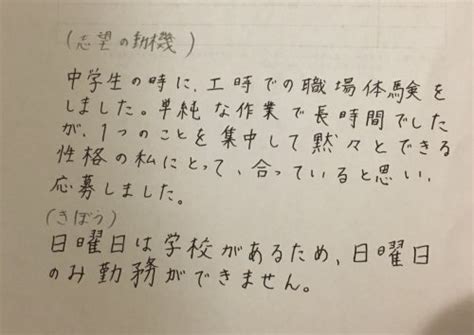 (志望の動機)
中学生の時に、工時での職場体験を
しました。単純な作業で長時間でした
が、1つのことを集中して黙々とできる
性格の私にとって、合っていると思い、
応募しました。
(きぼう)
日曜日は学校があるため、日曜日
のみ勤務ができません。